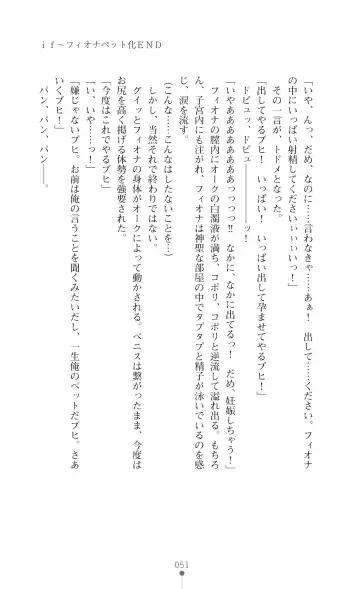 ｉｆ～フィオナペット化ＥＮＤ
「いや、んっ、だめ、なのに……言わなきゃ……あぁ！　出して……ください。フィオナ
の中にいっぱい射精してくださいぃぃぃいっ！」
その一言が、トドメとなった。
「出してやるブヒ！　いっぱい！　いっぱい出して孕ませてやるブヒ！」
ドビュッ、ドビュ――――ッ！
「いやああああああああっっっっ!!　なかに、なかに出てるっ！　だめ、妊娠しちゃう！」
フィオナの膣内にオークの白濁液が満ち、コポリ、コポリと逆流して溢れ出る。もちろ
ん、子宮内にも注がれ、フィオナは神聖な部屋の中でタプタプと精子が泳いでいるのを感
じ、涙を流す。
（こんな……こんなはしたないことを…）
しかし、当然それで終わりではない。
グイッとフィオナの身体がオークによって動かされる。ペニスは繋がったまま、今度は
お尻を高く掲げる体勢を強要された。
「今度はこれでやるブヒ」
「い、いや……っ！」
「嫌じゃないブヒ。お前は俺の言うことを聞くみたいだし、一生俺のペットだブヒ。さあ
いくブヒ！」
パン、パン、パン――。
051